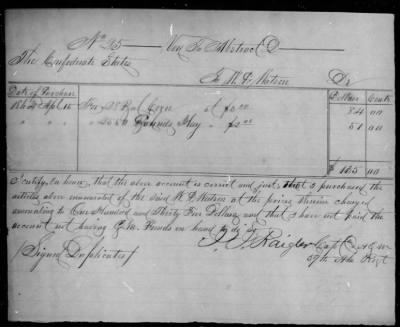 No 25 — Vou To Abstract D —
The Confederate States
To W. F. Watson Dr
Date of Purchase Dollars Cents
1864 Apl 15 For 28 Bus Corn at $3.00 84 00
" " " 2550 Pounds Hay " $2.00 51 00
$ 135 00
I certify, on honor, that the above account is correct and just, that I purchased the
articles above enumerated of the said W. F. Watson at the prices therein charged
amounting to One Hundred and Thirty Five Dollars and that I have not paid the
account not having Q.M. Funds in hand to do it
(Signed Duplicates) Capt &
Ala Regt